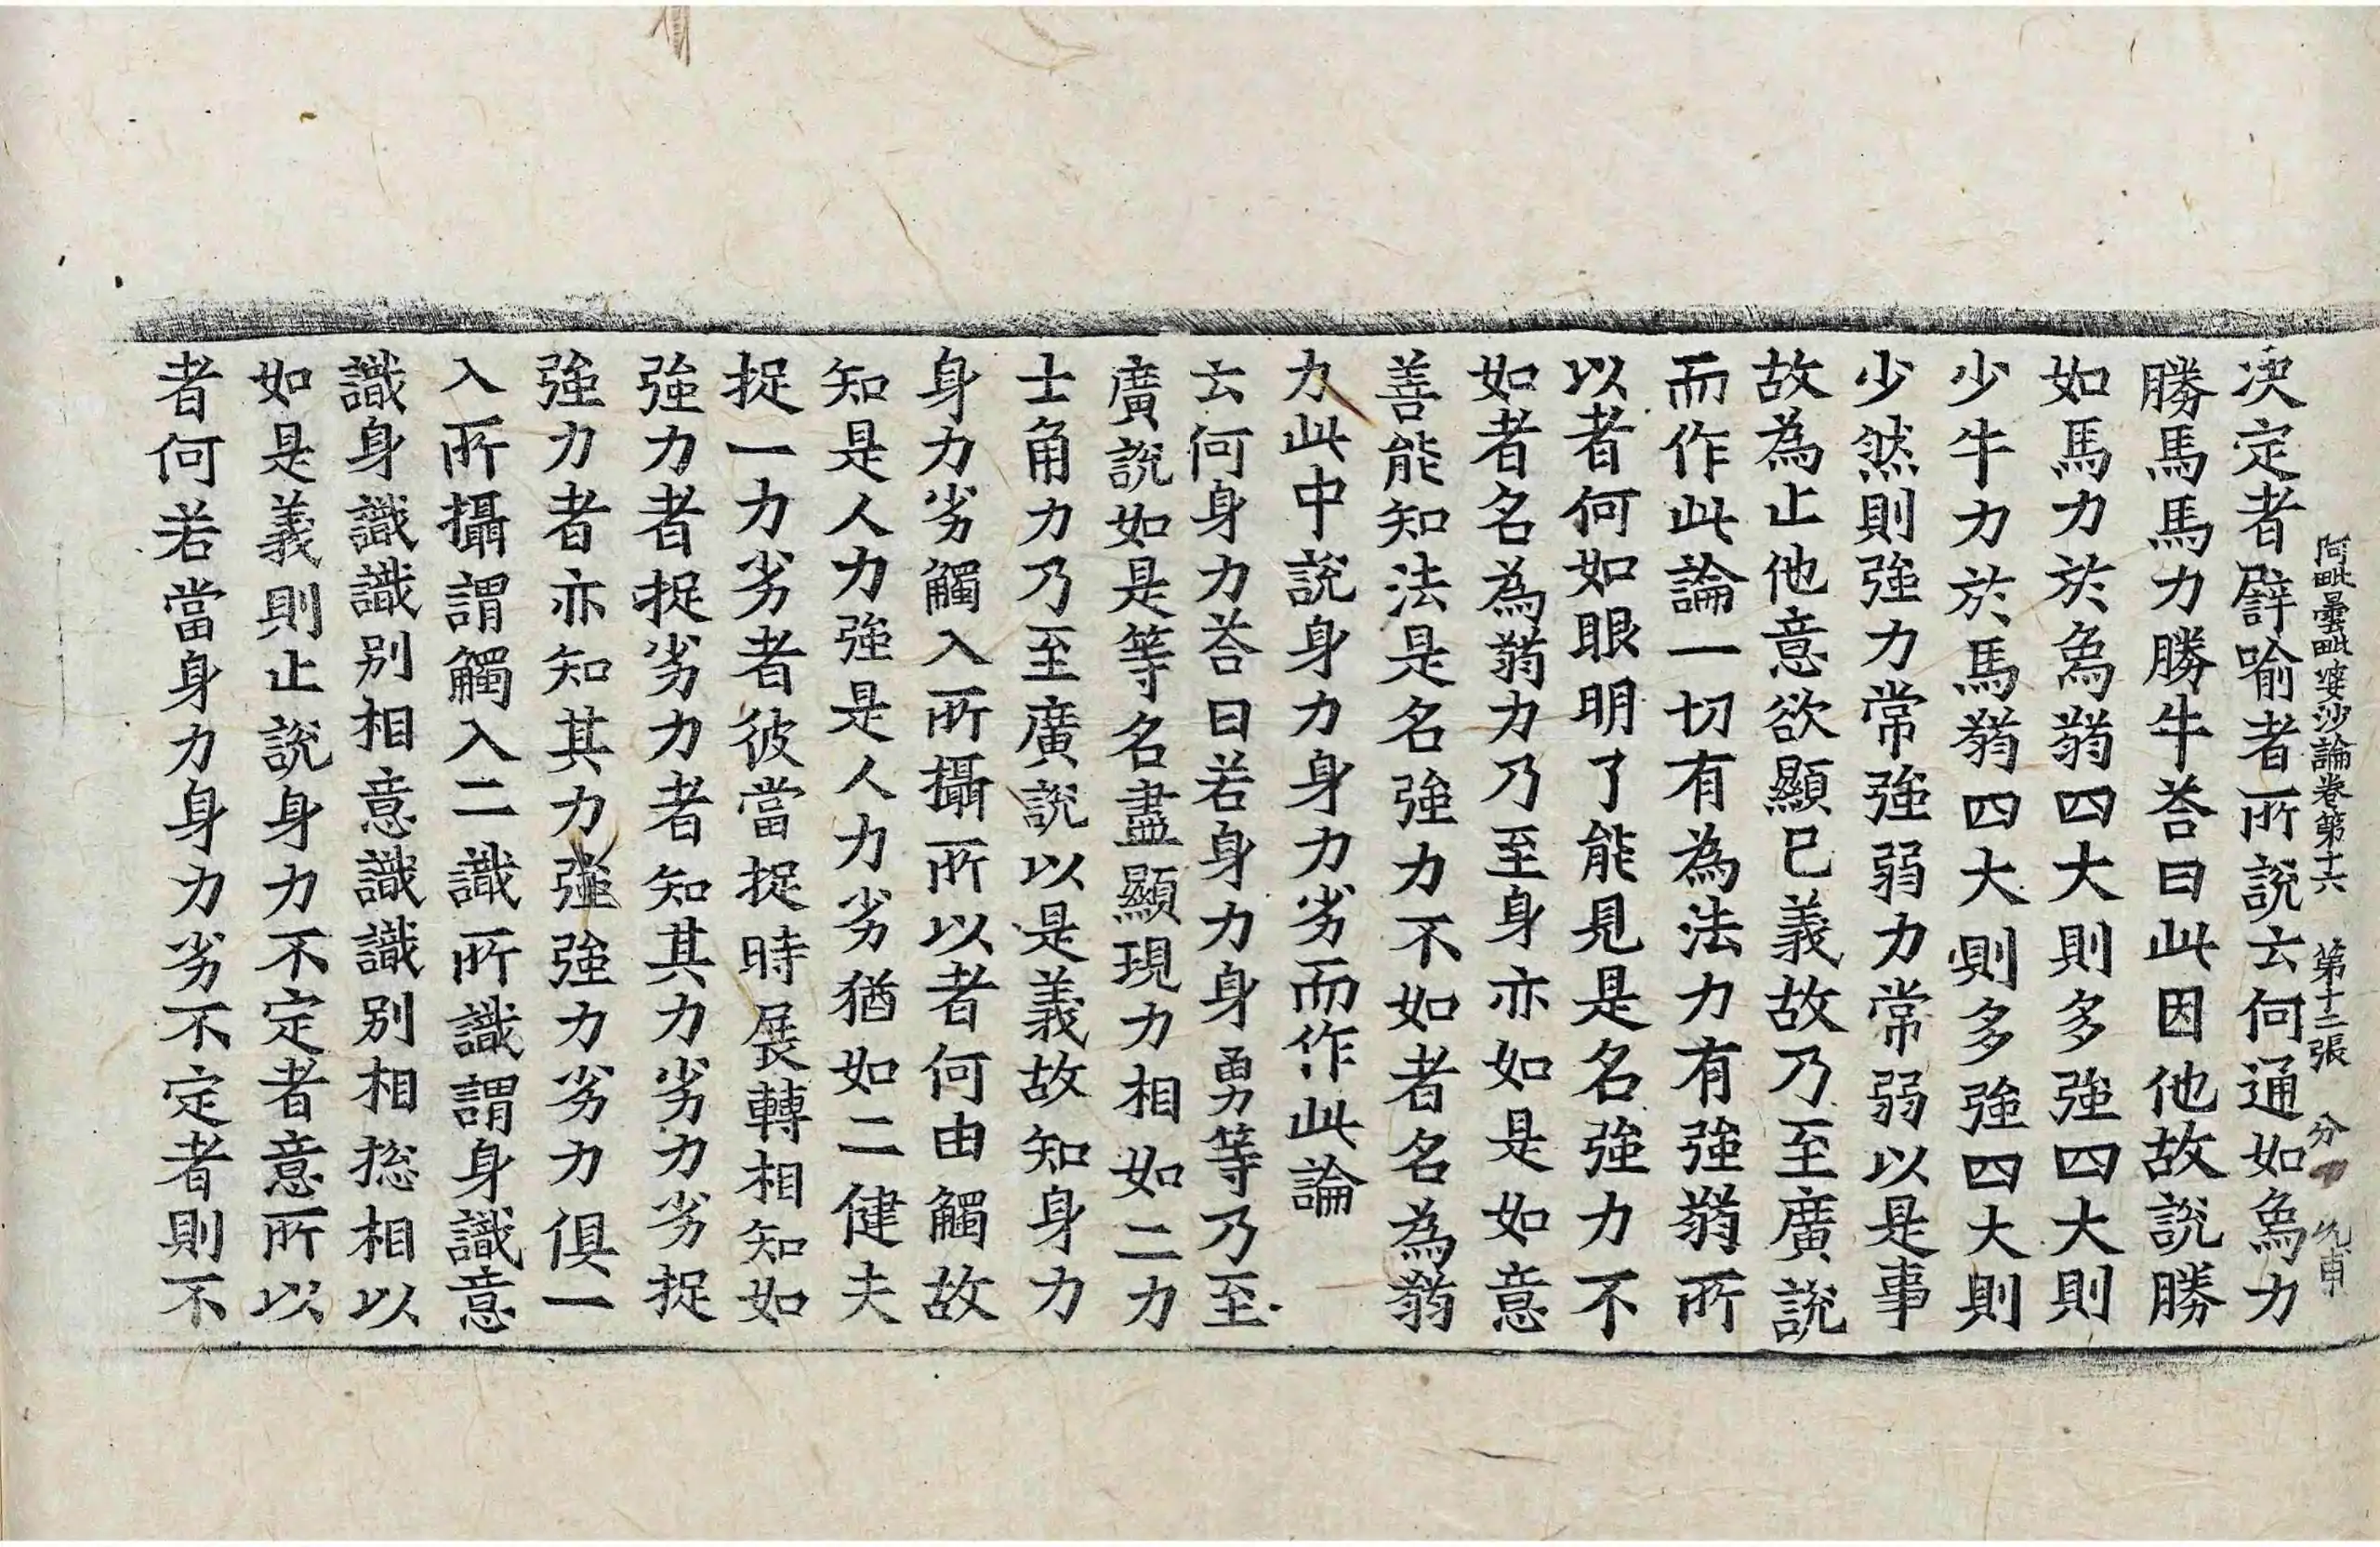 阿毗曇毗婆沙論卷第十六　第十二張　分
決定者譬喻者所說云何通如為力
勝馬馬力勝牛荅曰此因他故說勝
如馬力於為蒻四大則多強四大則
少牛力於馬蒻四大則多強四大則
少然則強力常強弱力常弱以是事
故為止他意欲顯已義故乃至廣說
而作此論一切有為法力有強蒻所
以者何如眼明了能見是名強力不
如者名為蒻力乃至身亦如是如意
善能知法是名強力不如者名為蒻
力此中說身力身力劣而作此論
云何身力荅曰若身力身勇等乃至
廣說如是等名盡顯現力相如二力
士角力乃至廣說以是義故知身力
身力劣觸入所攝所以者何由觸故
知是人力強是人力劣猶如二健夫
捉一力劣者彼當捉時展轉相知如
強力者捉劣力者知其力劣力劣捉
強力者亦知其力強強力劣力俱一
入所攝謂觸入二識所識謂身識意
識身識識别相意識識别相揔相以
如是義則止說身力不定者意所以
者何若當身力身力劣不定者則不